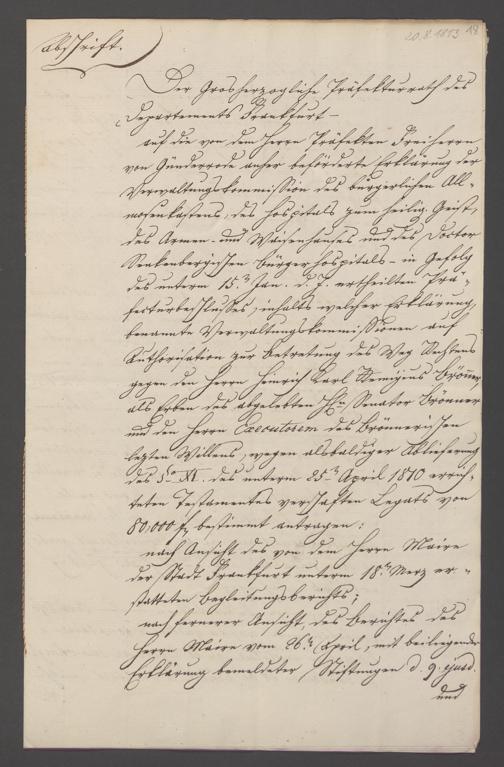 20.8.1813 18
Abschrift.
Der Grosherzogliche Präfekturrath des
Departements Frankfurt –
auf die von dem Herrn Präfekten Freiherrn
von Günderrode anher beförderte Erklärung der
Verwaltungskommission des bürgerlichen All-
mosenkastens, des Hospitals zum heilig. Geist,
des Armen- und Waisenhauses und des Doctor
Senkenbergischen Bürgerhospitals – in Gefolg
des unterm 15.n Jan. d. J. ertheilten Prä-
fecturbeschlusses, inhalts welcher Erklärung,
benannte Verwaltungskommissionen auf
Authorisation zur Betretung des Weg Rechtens
gegen den Herrn Heinrich Karl Remigius Brönner
als Erben des abgelebten Hrn Senator Brönner
und den Herrn Executorem des Brönnerischen
lezten Willens, wegen alsbaldiger Ablieferung
des §. XI. des unterm 25.n April 1810 errich-
teten Testamentes verschafften Legats von
80,000 f. bestimmt antragen;
nach Ansicht des von dem Herrn Maire
der Stadt Frankfurt unterm 18.n Merz er-
statteten Begleitungsberichts;
nach fernerer Ansicht, des Berichtes des
Herrn Maire vom 26.n April, mit beiliegender
Erklärung bemeldeter Stiftungen d. 9. ejusd.
und